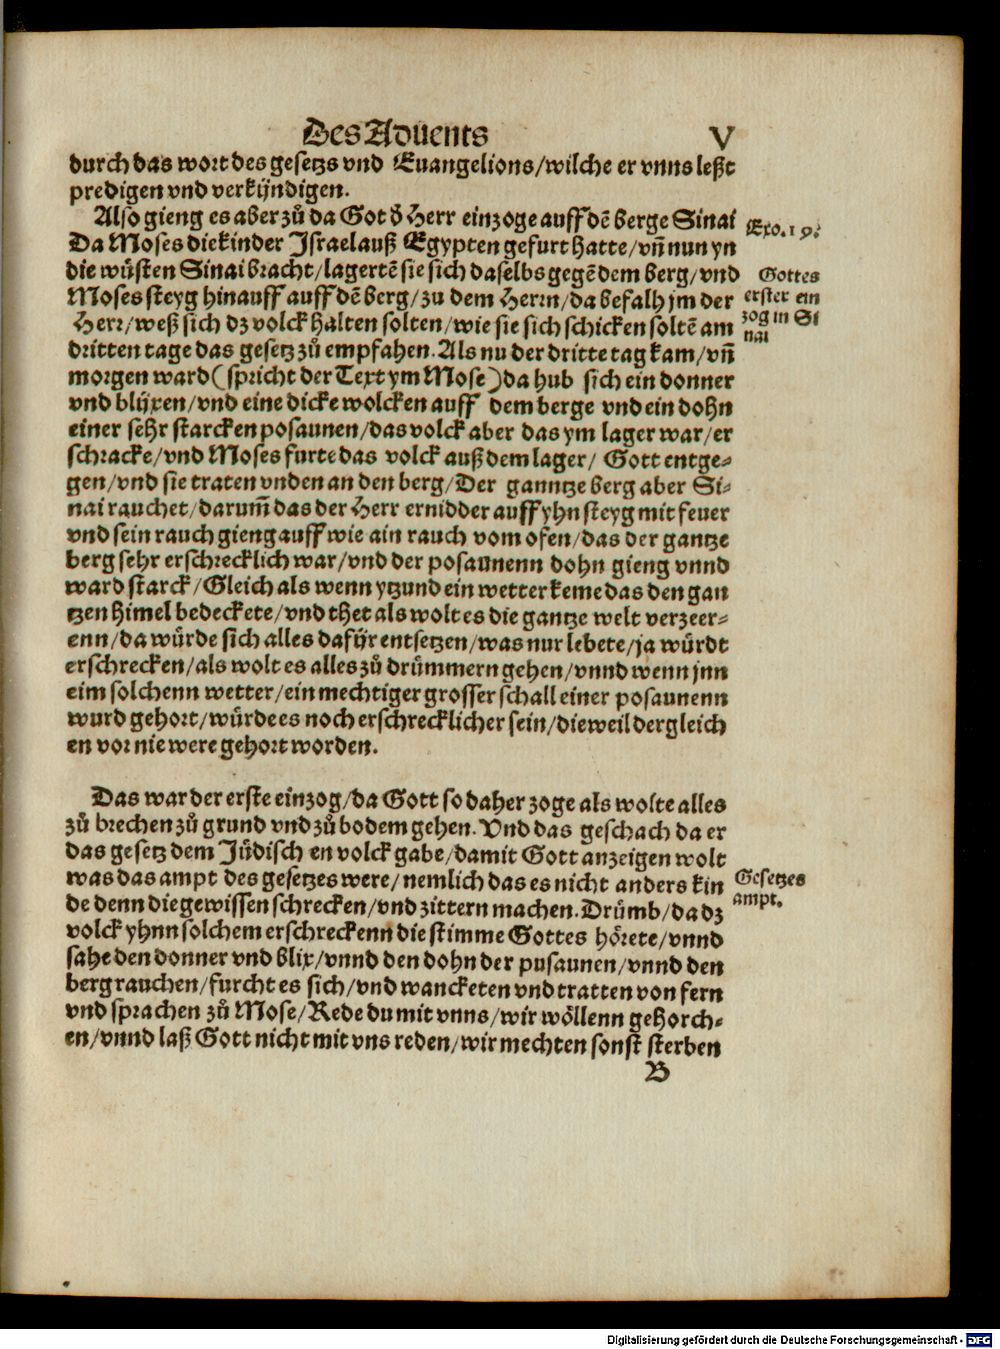 Des Aduents V
durch das wort des gesetzs vnd Euangelions/wilche er vnns leßt
predigen vnd verkÿndigen.
Also gieng es aber zů da Got d̕ Herr einzoge auff dē berge Sinai
Exo. 19.
Da Moses die kinder Israel auß Egypten gefurt hatte/vn̄ nun yn
die wůsten Sinai bracht/lagertē sie sich daselbs gegē dem berg/vnd
Moses steyg hinauff auff dē berg/zu dem Herrn/da befalh jm der
Herr/weß sich dz volck halten solten/wie sie sich schicken soltē am
Gottes
erster ein
zog in Si
nai
dritten tage das gesetz zů empfahen. Als nu der dritte tag kam/vn̄
morgen ward (spricht der Text ym Mose) da hub sich ein donner
vnd blÿxen/vnd eine dicke wolcken auff dem berge vnd ein dohn
einer sehr starcken posaunen/das volck aber das ym lager war/er
schracke/vnd Moses furte das volck auß dem lager/ Gott entge-
gen/vnd sie traten vnden an den berg/Der ganntze berg aber Si-
nai rauchet/darum̄ das der Herr ernidder auff yhn steyg mit feuer
vnd sein rauch gieng auff wie ain rauch vom ofen/das der gantze
berg sehr erschrecklich war/vnd der posaunenn dohn gieng vnnd
ward starck/Gleich als wenn ytzund ein wetter keme das den gan
tzen himel bedeckete/vnd thet als wolt es die gantze welt verzeer-
enn/da wůrde sich alles dafÿr entsetzen/was nur lebete/ja wůrdt
erschrecken/als wolt es alles zů drůmmern gehen/vnnd wenn jnn
eim solchenn wetter/ein mechtiger grosser schall einer posaunenn
wurd gehort/wůrde es noch erschrecklicher sein/dieweil dergleich
en vor nie were gehort worden.
Das war der erste einzog/da Gott so daher zoge als wolte alles
zů brechen zů grund vnd zů bodem gehen. Vnd das geschach da er
das gesetz dem Jůdisch en volck gabe/damit Gott anzeigen wolt
was das ampt des gesetzes were/nemlich das es nicht anders kin
Gesetzes
ampt.
de denn die gewissen schrecken/vnd zittern machen. Drůmb/da dz
volck yhnn solchem erschreckenn die stimme Gottes hôrete/vnnd
sahe den donner vnd blix/vnnd den dohn der pusaunen/vnnd den
berg rauchen/furcht es sich/vnd wancketen vnd tratten von fern
vnd sprachen zů Mose/Rede du mit vnns/wir wôllenn gehorch-
en/vnnd laß Gott nicht mit vns reden/wir mechten sonst sterben
B
Digitalisierung gefördert durch die Deutsche Forschungsgemeinschaft - DFG